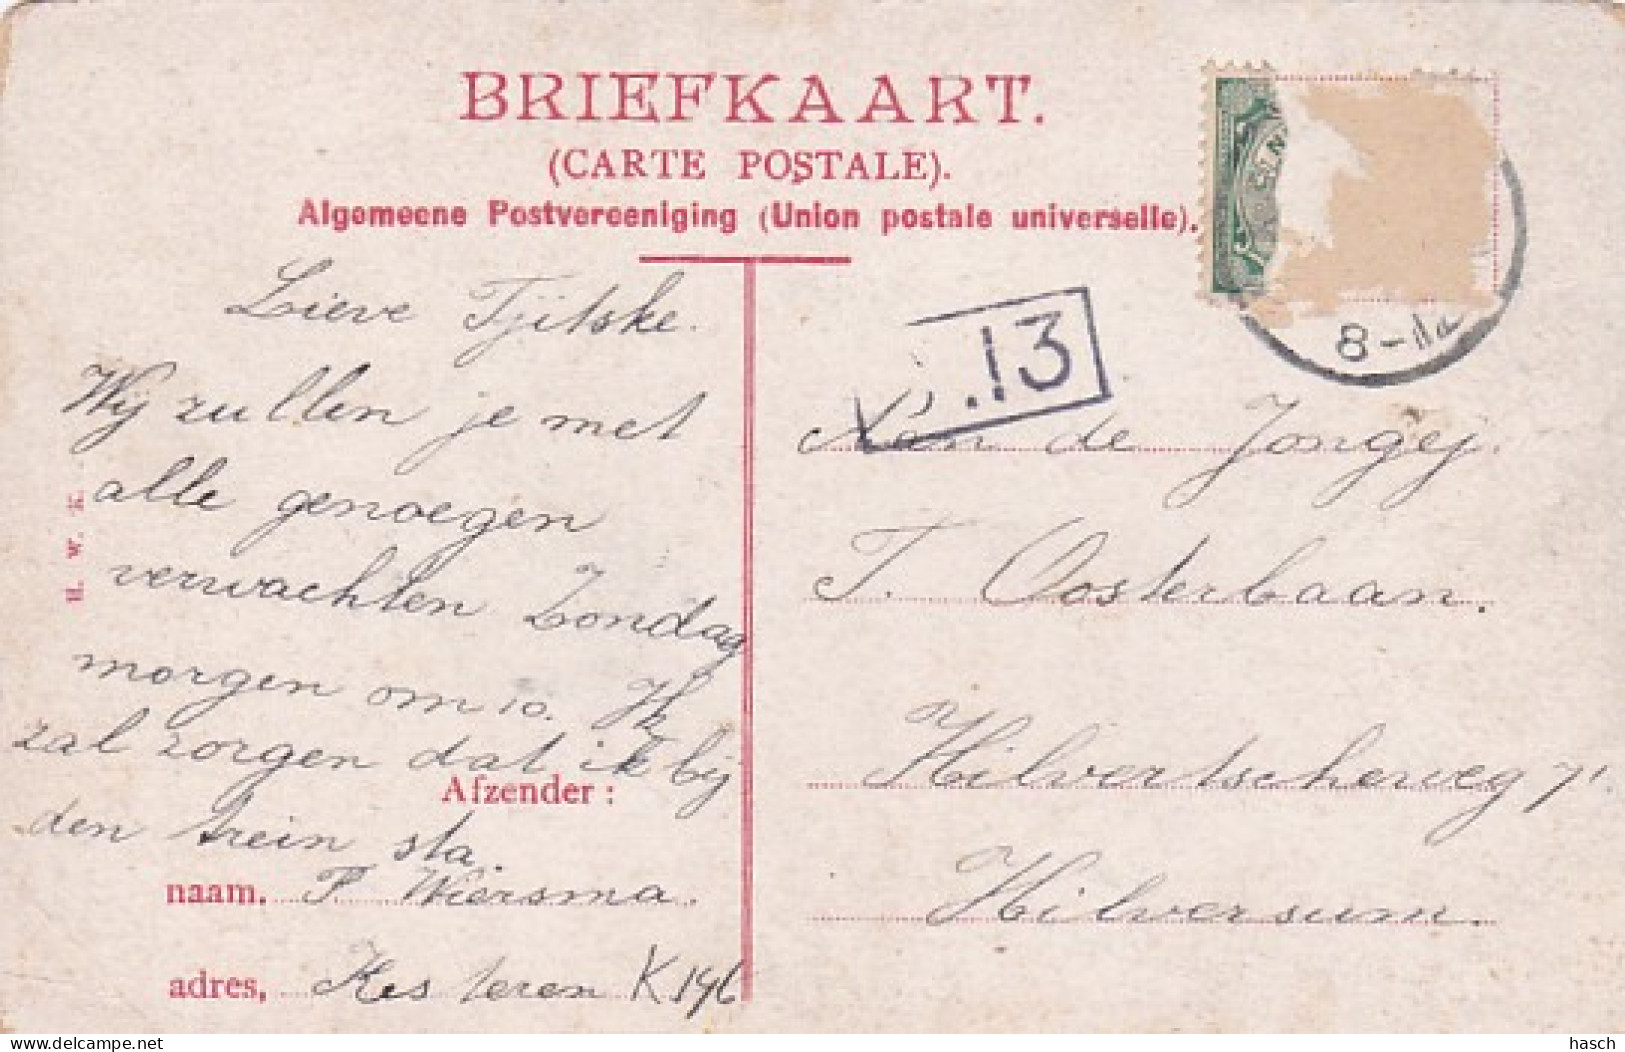 BRIEFKAART.
(CARTE POSTALE).
Algemeene Postvereeniging (Union postale universelle).
Lieve Tjitske.
Wij zullen je met
alle genoegen
verwachten Zondag
morgen om 10. Ik
zal zorgen dat ik bij
den trein sta.
Afzender:
naam. P. Wiersma.
adres, Kesteren K146
H. W. K.
.13
8-12
Aan de Jongej.
T. Oosterbaan.
Hilvertscheweg 71.
Hilversum.
delcampe.net
hasch